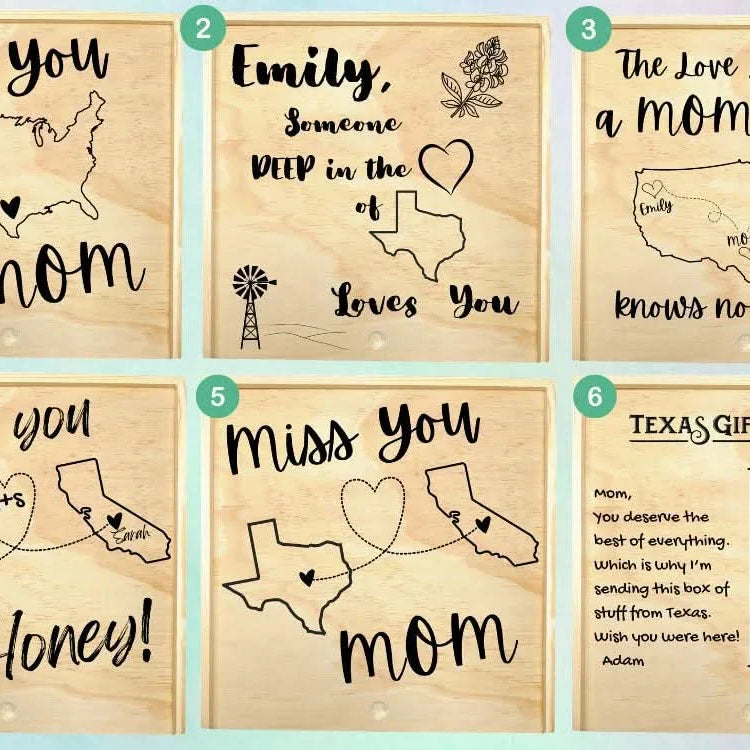 you
mom
2
Emily,
Someone
DEEP in the
of
Loves You
3
The Love
a mom
Emily
mo
knows no
you
+s
Sarah
Honey!
5
Miss you
mom
6
TEXAS GIF
Mom,
You deserve the
best of everything.
Which is why I'm
sending this box of
stuff from Texas.
Wish you were here!
Adam